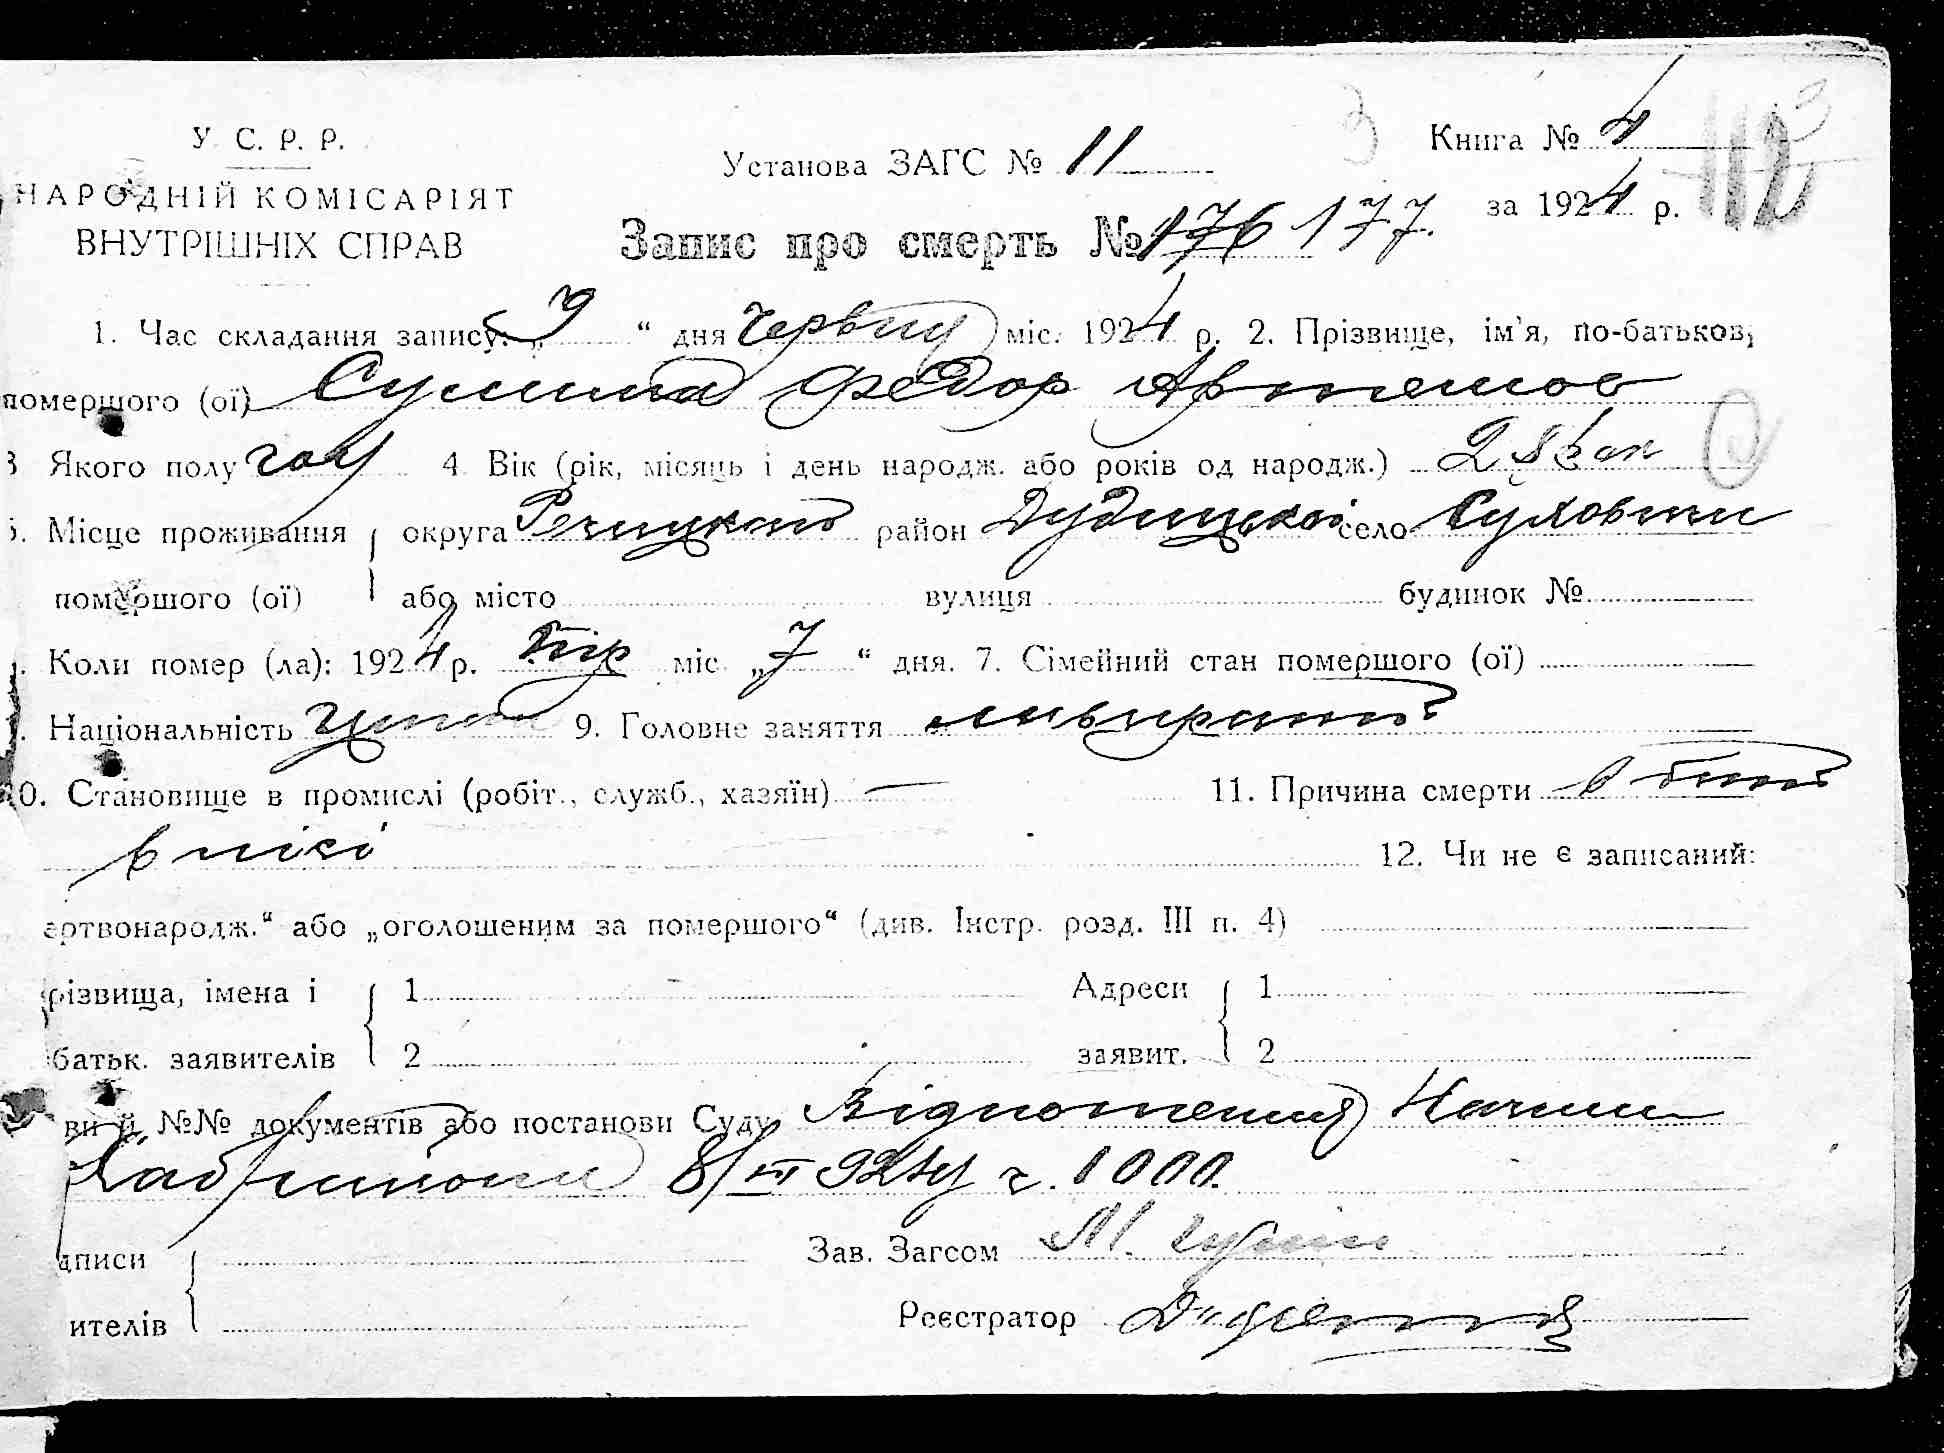 У. С. Р. Р.
НАРОДНІЙ КОМІСАРІЯТ
ВНУТРІШНІХ СПРАВ
Установа ЗАГС № 11
Книга № 4
за 1924 р.
112
Запис про смерть № 176 177.
1. Час складання запису: „9“ дня червня міс. 1924 р. 2. Прізвище, ім'я, по-батькові
помершого (ої) Федор Артемов
3 Якого полу чол 4. Вік (рік, місяць і день народж. або років од народж.) 28 рок
5. Місце проживання округа Речицкой район Дудицької село
помершого (ої) або місто вулиця будинок №
. Коли помер (ла): 1924 р. міс „7“ дня. 7. Сімейний стан помершого (ої)
. Національність 9. Головне заняття
10. Становище в промислі (робіт., служб., хазяїн) — 11. Причина смерти вбитий
в лісі 12. Чи не є записаний:
ертвонародж.“ або „оголошеним за помершого“ (див. Інстр. розд. III п. 4)
різвища, імена і 1 Адреси 1
батьк. заявителів 2 заявит. 2
ви й №№ документів або постанови Суду Відношення
8/VI 924 ч. 1000.
дписи Зав. Загсом М.
ителів Реєстратор